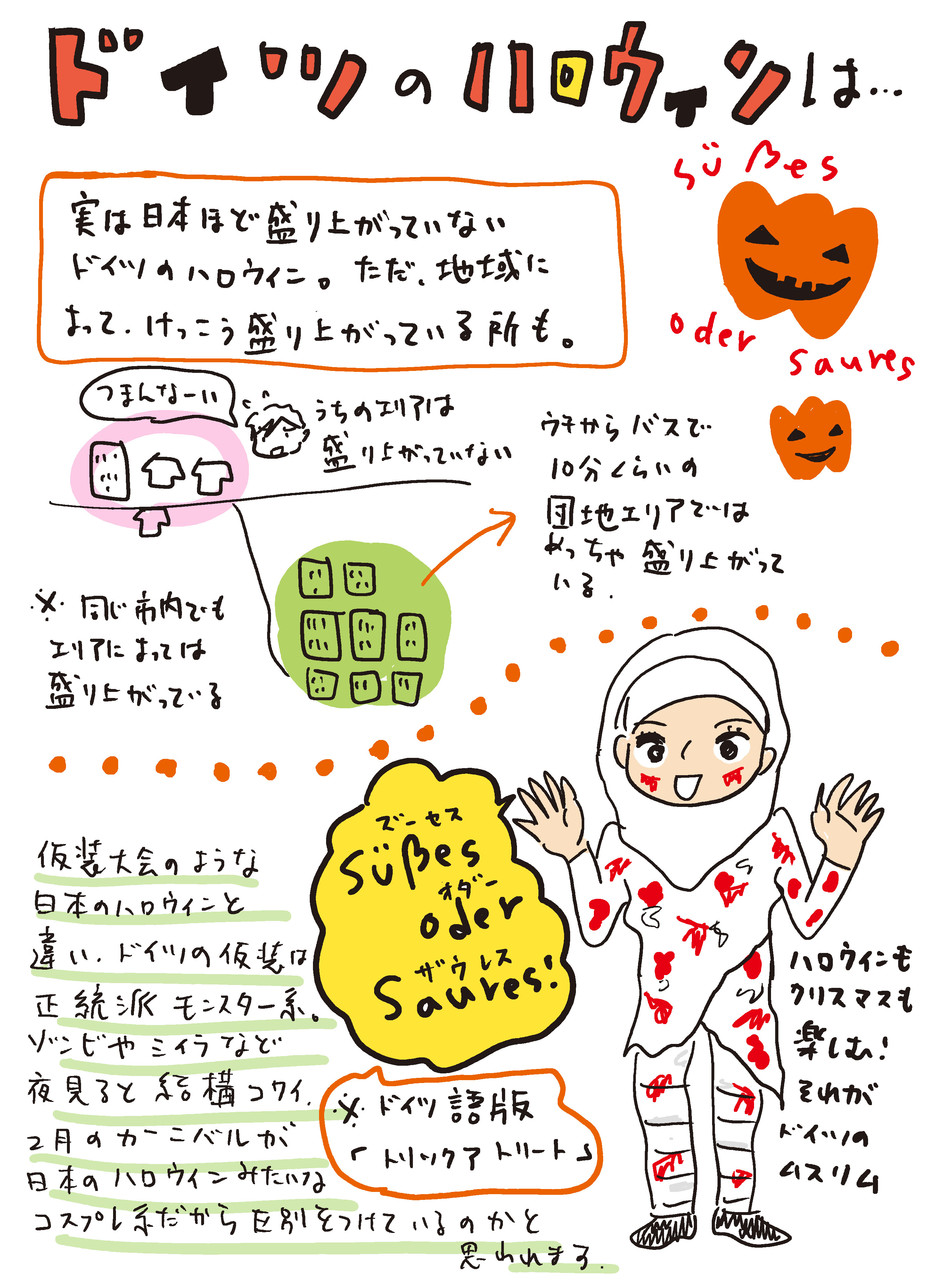 ドイツのハロウィンは…
süßes
oder
saures
実は日本ほど盛り上がっていない
ドイツのハロウィン。ただ、地域に
よって、けっこう盛り上がっている所も。
つまんなーい
うちのエリアは
盛り上がっていない
ウチからバスで
10分くらいの
団地エリアでは
めっちゃ盛り上がって
いる.
※同じ市内でも
エリアによっては
盛り上がっている
ズーセス
süßes
オダー
oder
ザウレス
Saures!
※ドイツ語版
「トリックアトリート」
仮装大会のような
日本のハロウィンと
違い、ドイツの仮装は
正統派モンスター系。
ゾンビやミイラなど
夜見ると結構コワイ.
2月のカーニバルが
日本のハロウィンみたいな
コスプレ系だから区別をつけているのかと
思われまる.
ハロウィンも
クリスマスも
楽しむ!
それが
ドイツの
ムスリム